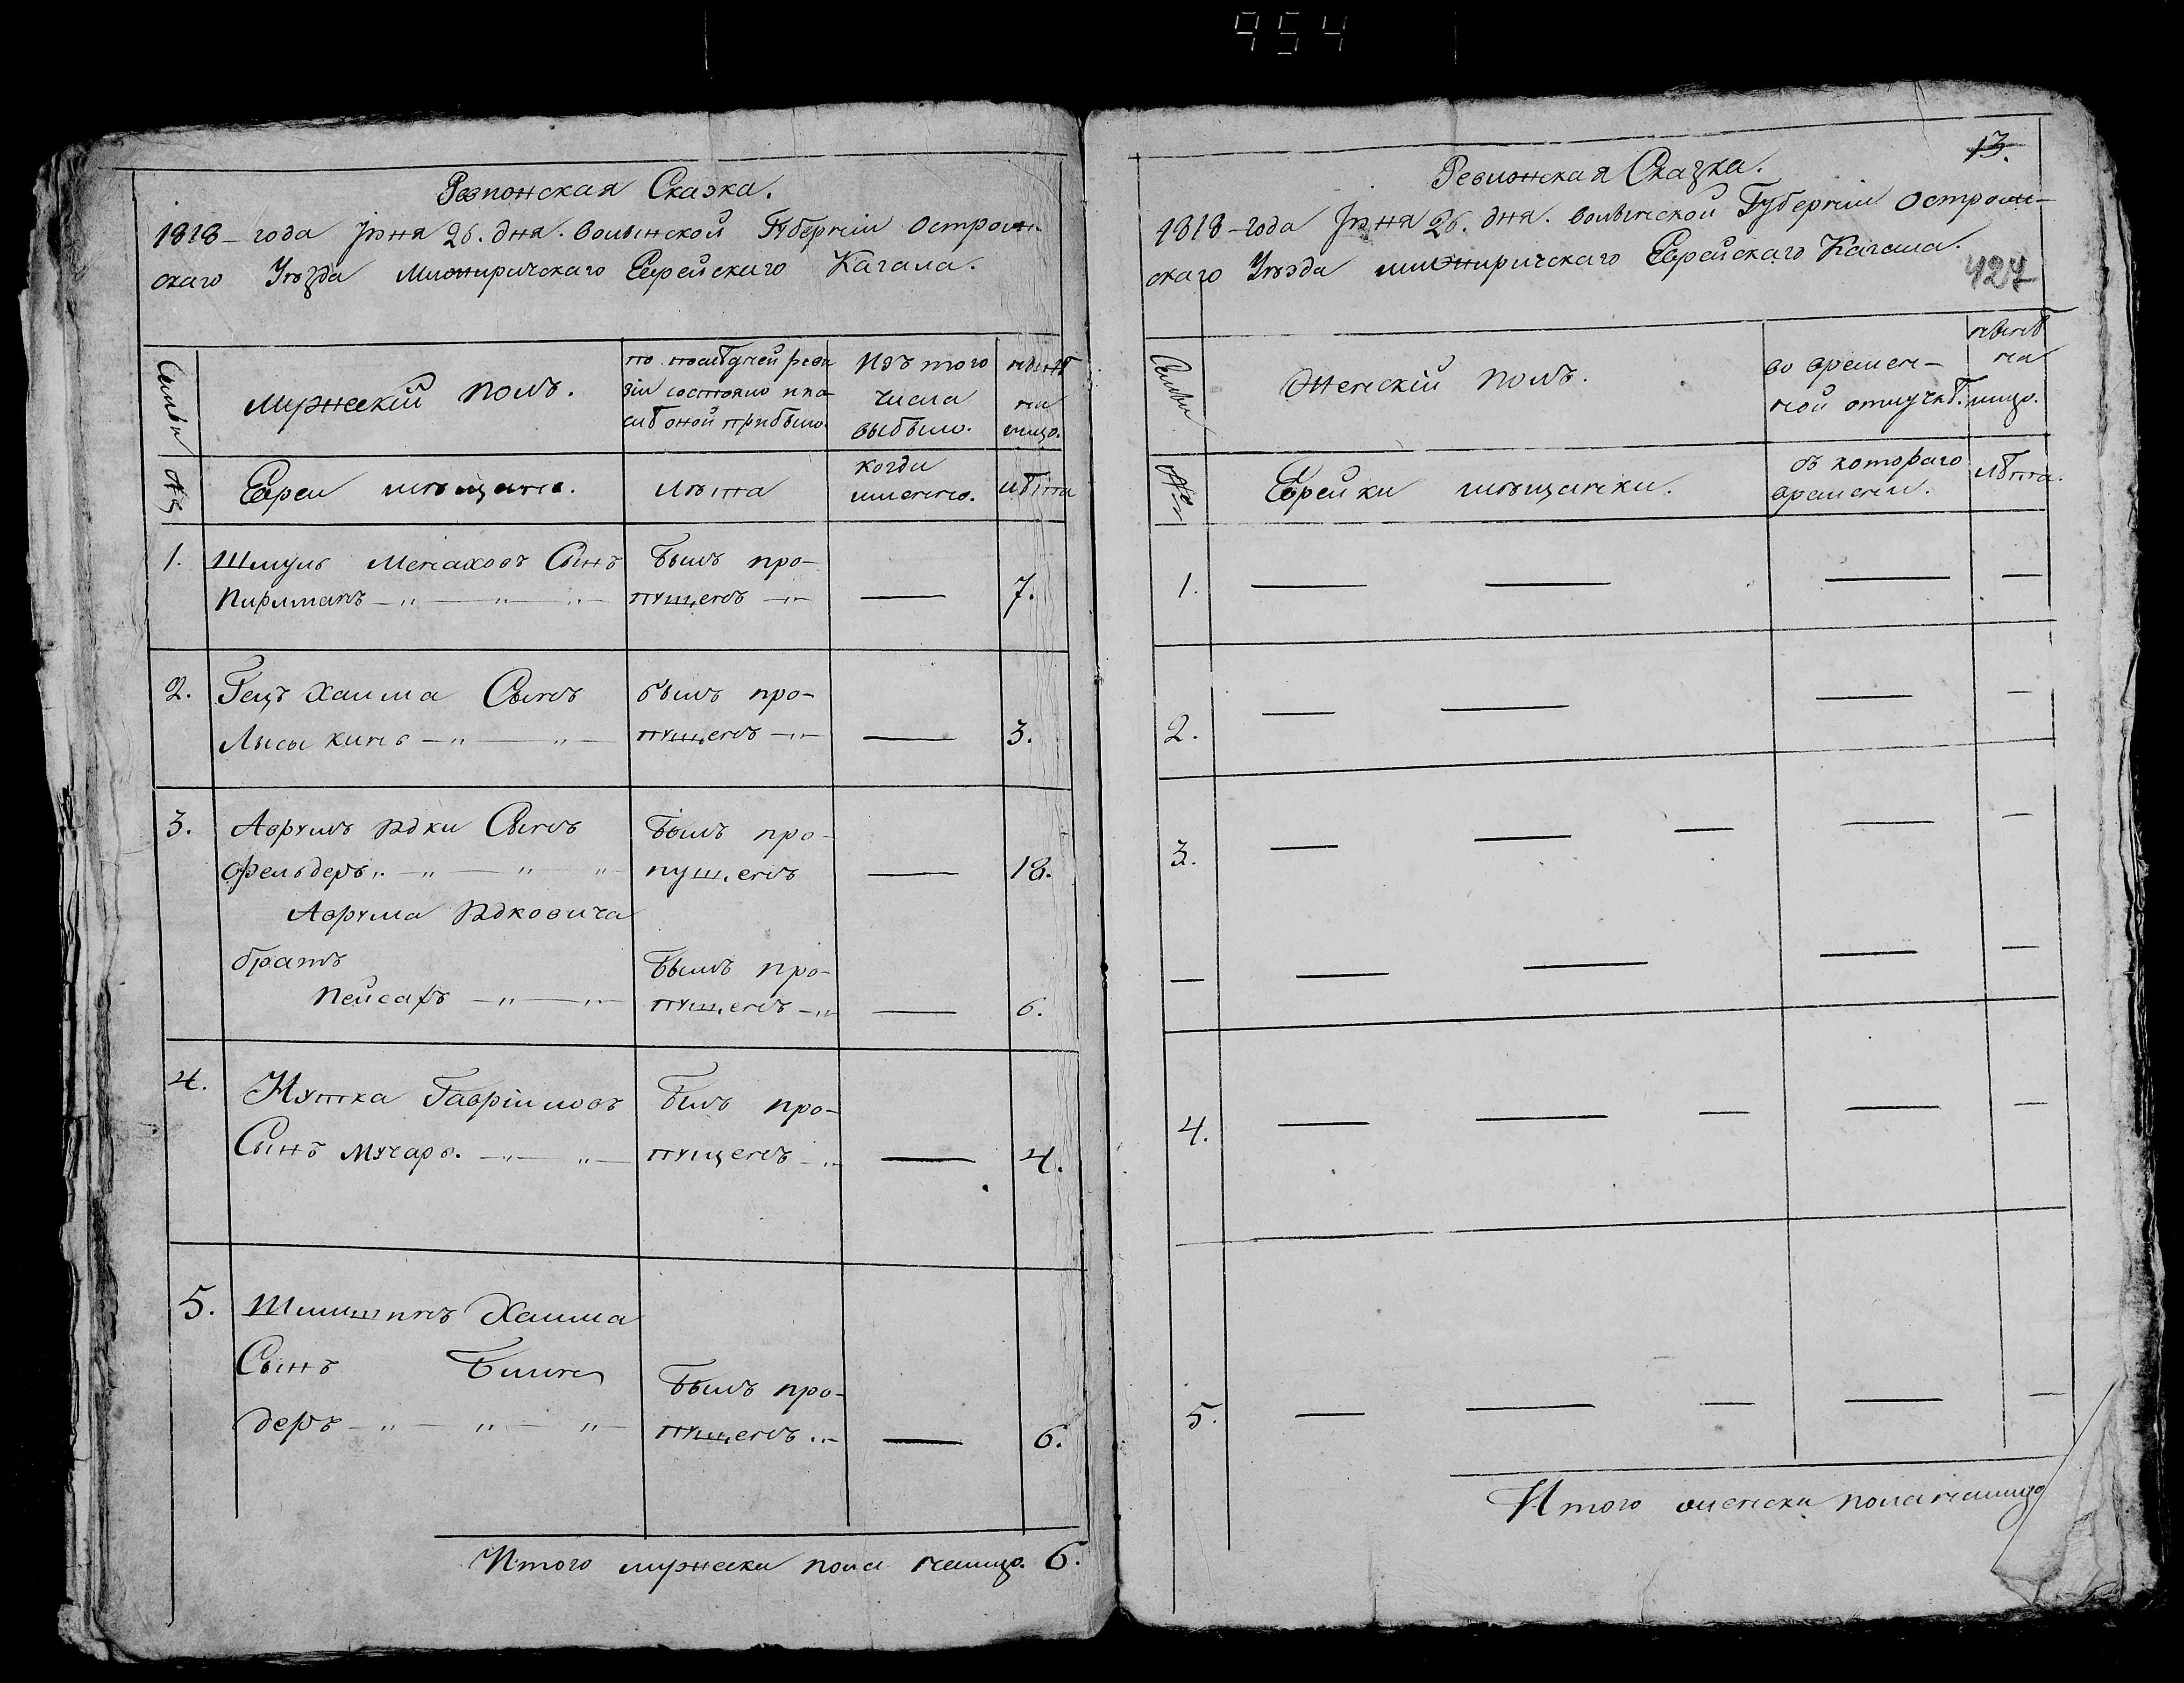 954
Ревижская Сказка.
1818 – года Июня 26. дня. Волынской Губерніи Острож-
скаго Уѣзда Межиричскаго Еврейскаго Кагала.
Семьи
Мужескій полъ.
по послѣдней реви
зіи состояло и по-
слѣ оной прибыло.
Изъ того
числа
выбыло.
нынѣ
на
лицо.
№
Евреи мѣщане.
Лѣта
когда
именно.
лѣта
1. Шмуль Менаховъ Сынъ Былъ про-
Пирманъ — „ — „ — „ — пущенъ — „ — — 7.
2. Гецъ Хаима Сынъ былъ про-
Лысы кинь — „ — „ — пущенъ — „ — — 3.
3. Аврумъ Юдки Сынъ Былъ про-
Фельдеръ „ — „ — „ — „ пущенъ — 18.
Аврума Юдковича
братъ Былъ про-
Пейсахъ — „ — „ — пущенъ — „ — 6.
4. Нутка Гавріиловъ Былъ про-
Сынъ Мучаръ. — „ — „ — пущенъ — „ — — 4.
5. Шимшинъ Хаима
Сынъ Бинь
деръ — „ — „ — „ —
Былъ про-
пущенъ „ — — 6.
Итого мужеска пола налицо. 6.
13.
Ревижская Сказка.
1818 – года Июня 26. дня. Волынской Губерніи Острож-
скаго Уѣзда Межиричскаго Еврейскаго Кагала.
427
Семьи
Женскій полъ.
во времен-
ной отлучкѣ.
нынѣ
на
лицо.
№
Еврейки мѣщанки.
съ котораго
времени.
лѣта.
1. — — — —
2. — — — —
3. — — — — —
— — — — —
4. — — — — —
5. — — — — —
Итого женска пола налицо